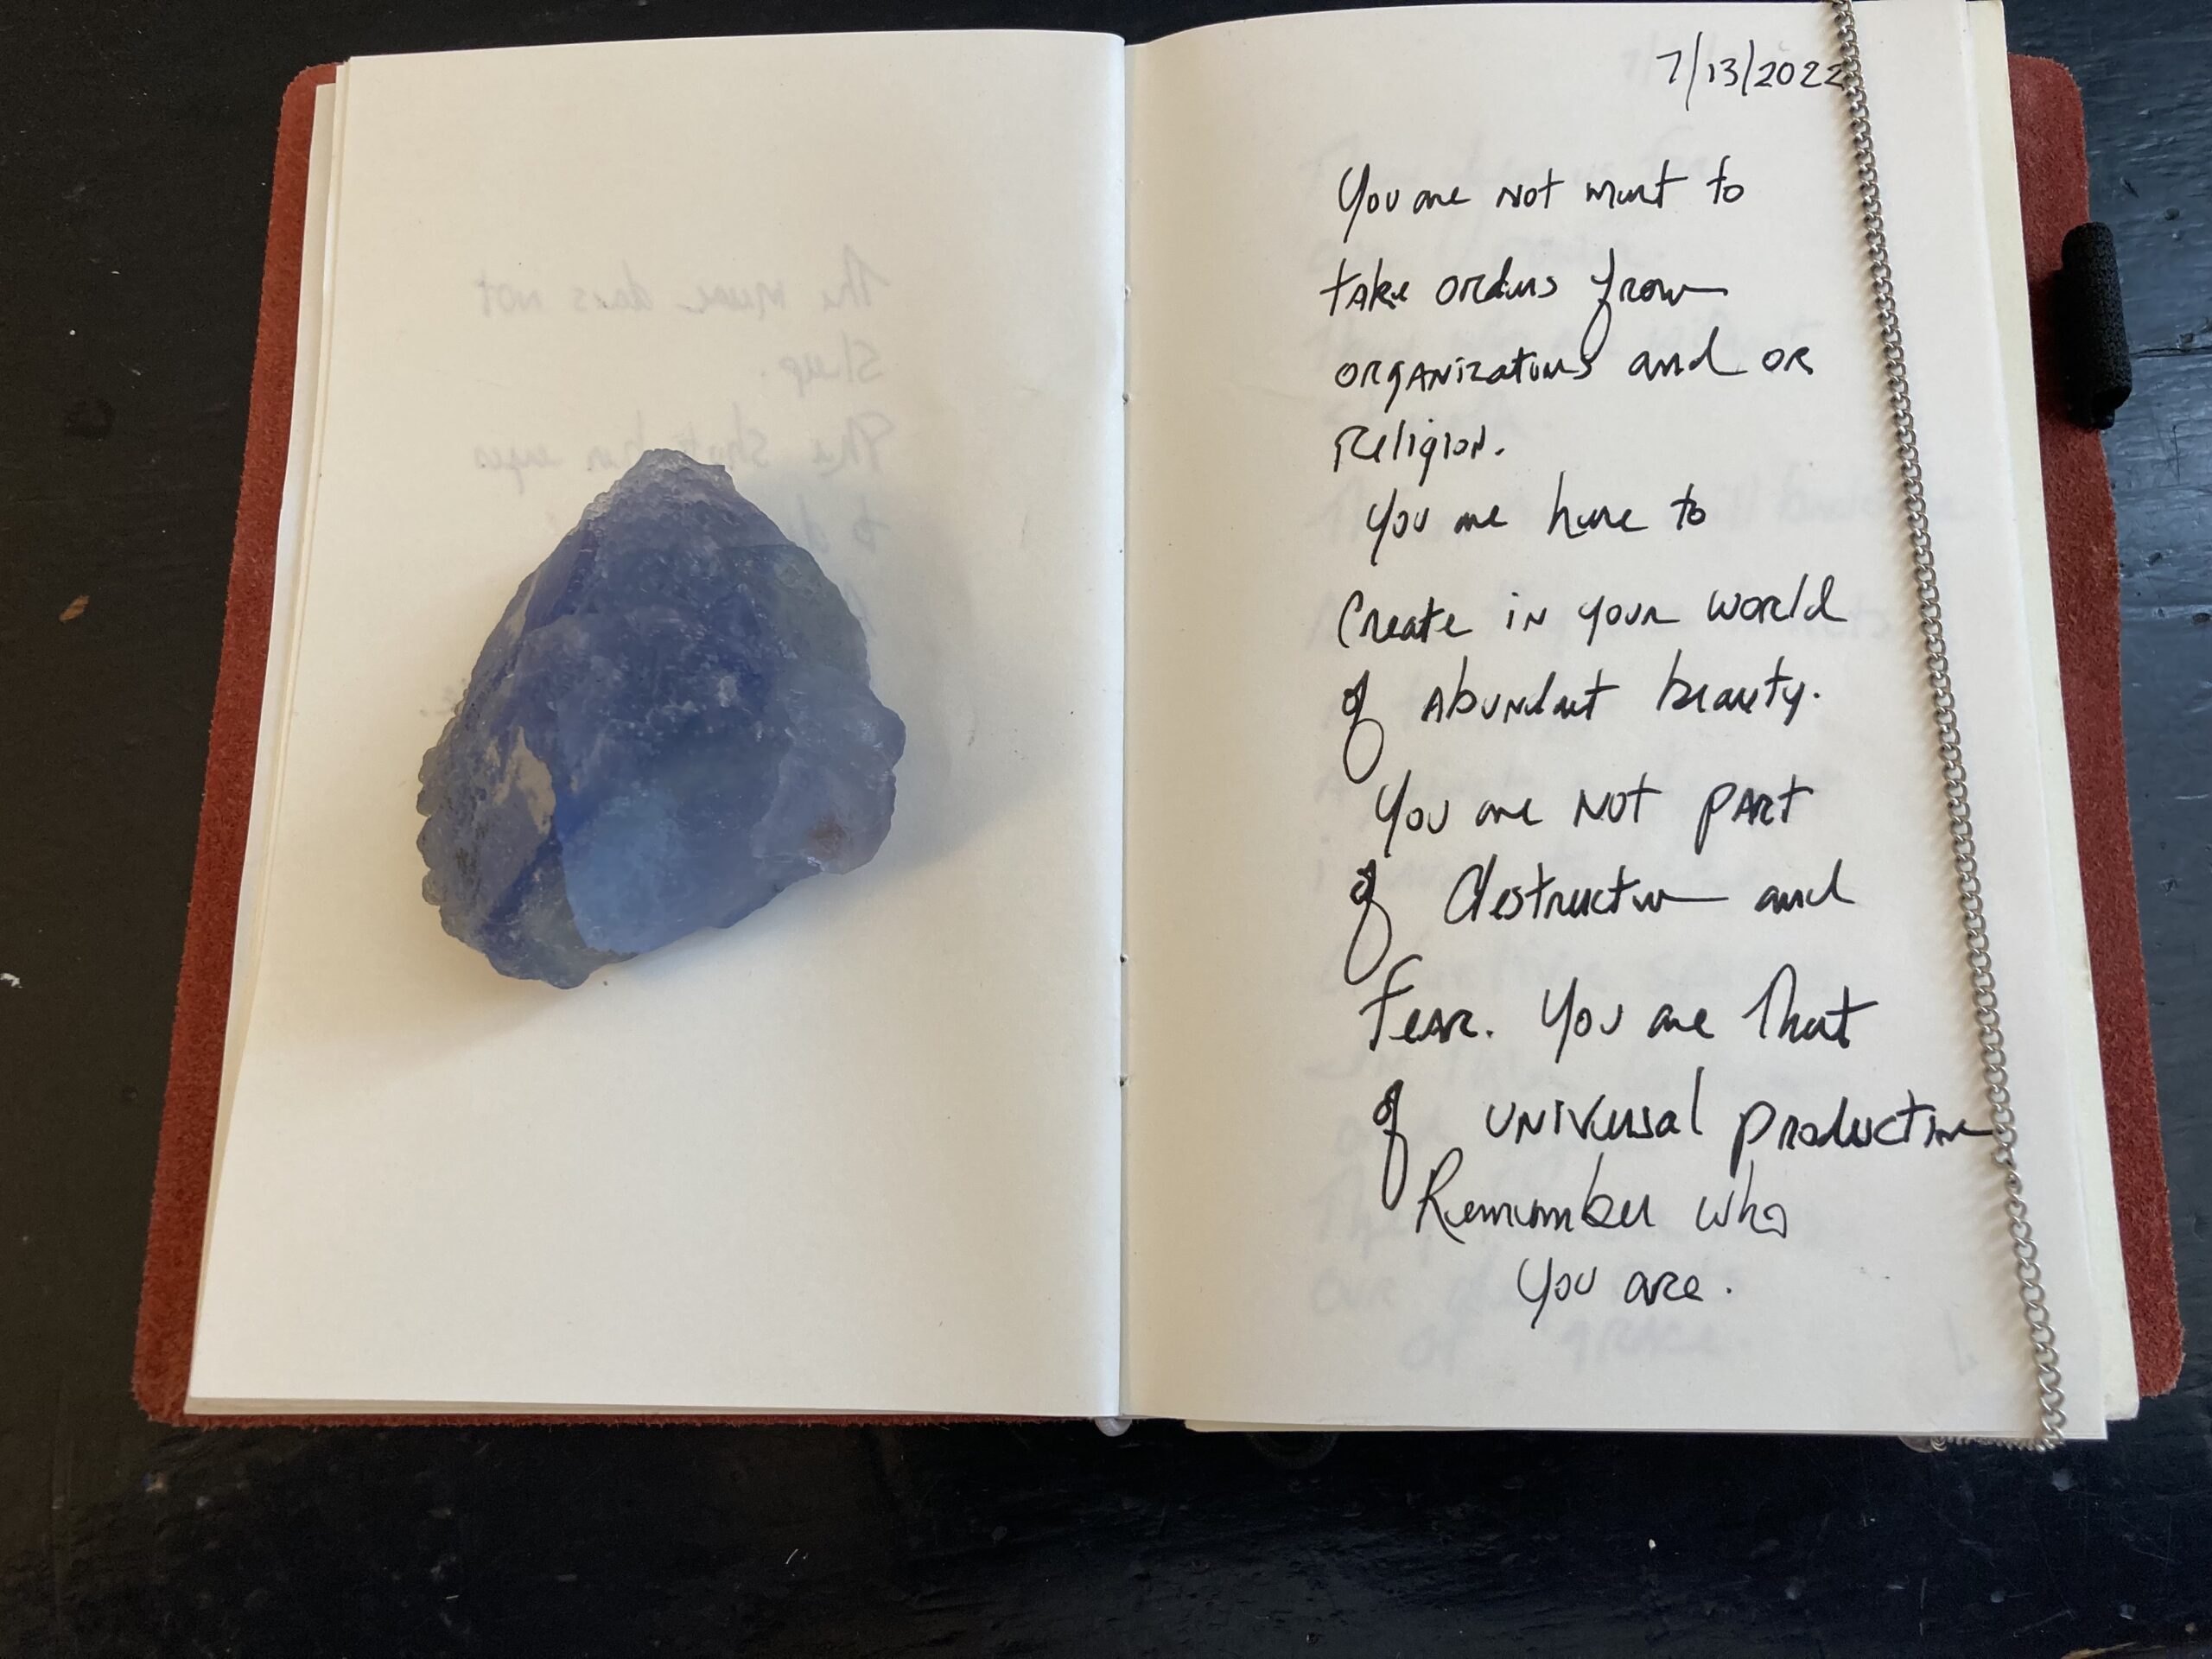 7/13/2022
You are not meant to
take orders from
organizations and or
Religion.
You are here to
Create in your world
of abundant beauty.
You are not part
of destruction and
Fear. You are That
of universal production
Remember who
you are.
The muse does not
Sleep.